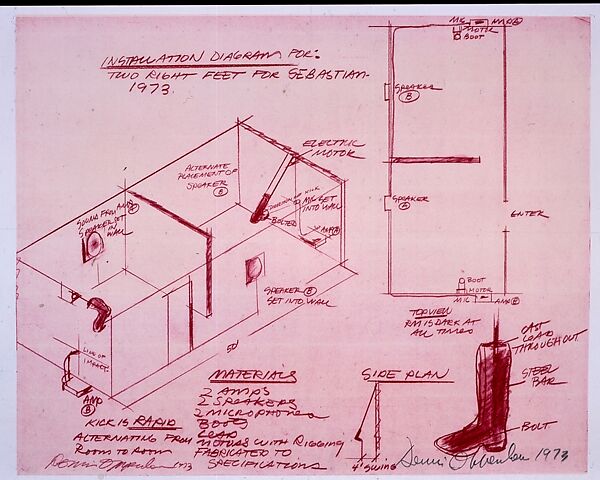 INSTALLATION DIAGRAM FOR:
TWO RIGHT FEET FOR SEBASTIAN-
1973.
MIC AMP B
MOTOR
BOOT
SPEAKER
B
SPEAKER
A
ENTER
BOOT
MOTOR
MIC AMP
TOP VIEW
RM IS DARK AT
ALL TIMES
ELECTRIC
MOTOR
ALTERNATE
PLACEMENT OF
SPEAKER
B
DIRECTION OF KICK
MIC SET
INTO WALL
BOLTED
AMP
SOUND FROM AMP
SPEAKER SET
IN
WALL
SPEAKER B
SET INTO WALL
LINE OF
IMPACT
AMP
B
50'
MATERIALS
2 AMPS
2 SPEAKERS
2 MICROPHONES
BOOTS
LEAD
MOTORS WITH RIGGING
FABRICATED TO
SPECIFICATIONS
KICK IS RAPID
ALTERNATING FROM
ROOM TO ROOM
Dennis Oppenheim 1973
SIDE PLAN
4' SWING
CAST
LEAD
THROUGHOUT
STEEL
BAR
BOLT
Dennis Oppenheim 1973